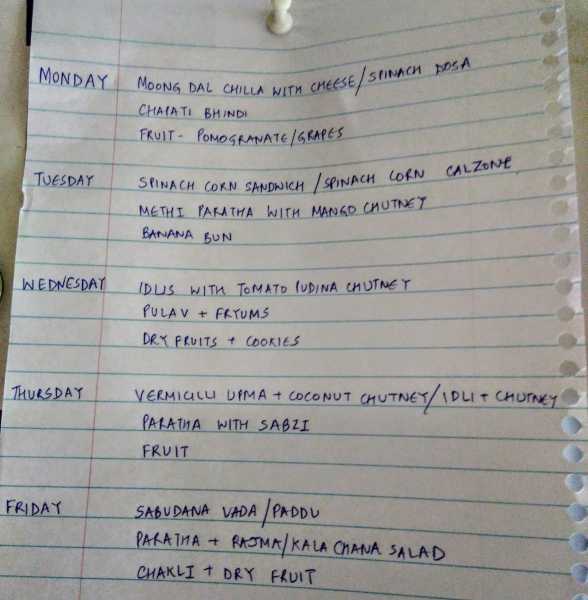 MONDAY MOONG DAL CHILLA WITH CHEESE/SPINACH DOSA
CHAPATI BHINDI
FRUIT - POMOGRANATE/GRAPES
TUESDAY SPINACH CORN SANDWICH /SPINACH CORN CALZONE
METHI PARATHA WITH MANGO CHUTNEY
BANANA BUN
WEDNESDAY IDLIS WITH TOMATO PUDINA CHUTNEY
PULAV + FRYUMS
DRY FRUITS + COOKIES
THURSDAY VERMICILLI UPMA + COCONUT CHUTNEY/IDLI + CHUTNEY
PARATHA WITH SABZI
FRUIT
FRIDAY SABUDANA VADA/PADDU
PARATHA + RAJMA/KALA CHANA SALAD
CHAKLI + DRY FRUIT